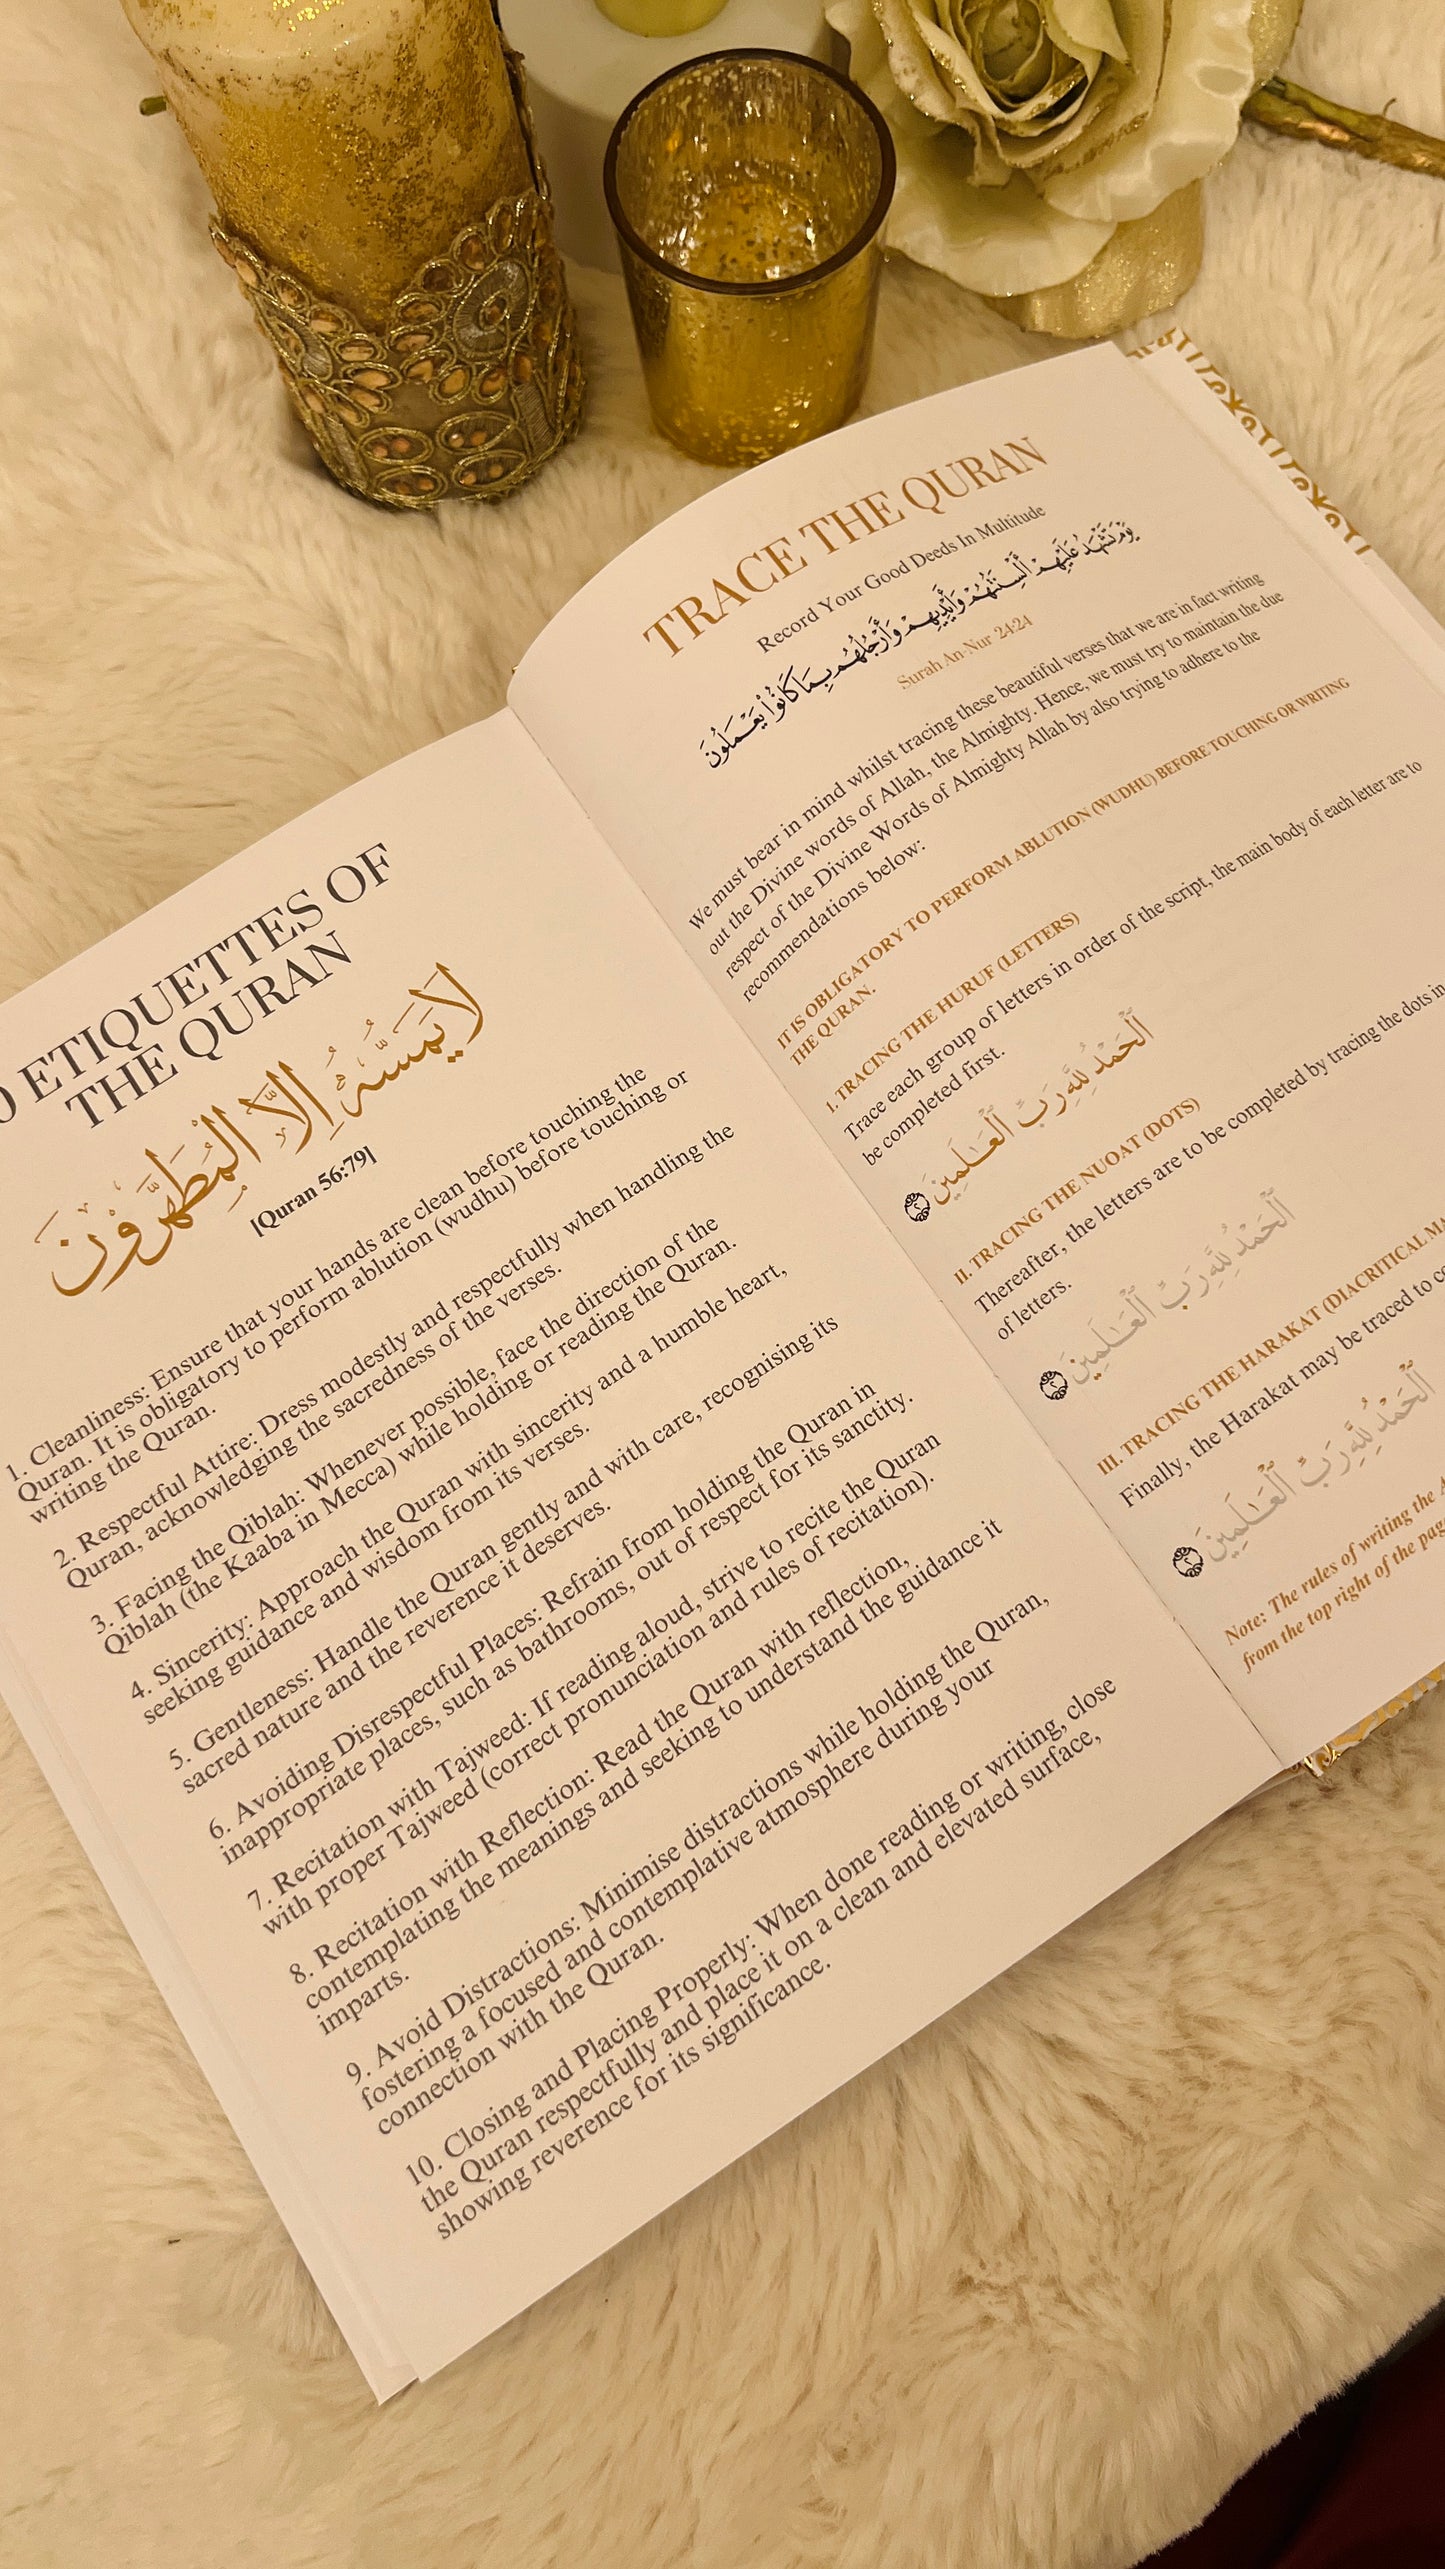 ETIQUETTES OF
THE QURAN
لَا يَمَسُّهُ إِلَّا الْمُطَهَّرُونَ
[Quran 56:79]
1. Cleanliness: Ensure that your hands are clean before touching the
Quran. It is obligatory to perform ablution (wudhu) before touching or
writing the Quran.
2. Respectful Attire: Dress modestly and respectfully when handling the
Quran, acknowledging the sacredness of the verses.
3. Facing the Qiblah: Whenever possible, face the direction of the
Qiblah (the Kaaba in Mecca) while holding or reading the Quran.
4. Sincerity: Approach the Quran with sincerity and a humble heart,
seeking guidance and wisdom from its verses.
5. Gentleness: Handle the Quran gently and with care, recognising its
sacred nature and the reverence it deserves.
6. Avoiding Disrespectful Places: Refrain from holding the Quran in
inappropriate places, such as bathrooms, out of respect for its sanctity.
7. Recitation with Tajweed: If reading aloud, strive to recite the Quran
with proper Tajweed (correct pronunciation and rules of recitation).
8. Recitation with Reflection: Read the Quran with reflection,
contemplating the meanings and seeking to understand the guidance it
imparts.
9. Avoid Distractions: Minimise distractions while holding the Quran,
fostering a focused and contemplative atmosphere during your
connection with the Quran.
10. Closing and Placing Properly: When done reading or writing, close
the Quran respectfully and place it on a clean and elevated surface,
showing reverence for its significance.
TRACE THE QURAN
Record Your Good Deeds In Multitude
يَوْمَ تَشْهَدُ عَلَيْهِمْ أَلْسِنَتُهُمْ وَأَيْدِيهِمْ وَأَرْجُلُهُم بِمَا كَانُوا يَعْمَلُونَ
Surah An-Nur 24:24
We must bear in mind whilst tracing these beautiful verses that we are in fact writing
out the Divine words of Allah, the Almighty. Hence, we must try to maintain the due
respect of the Divine Words of Almighty Allah by also trying to adhere to the
recommendations below:
IT IS OBLIGATORY TO PERFORM ABLUTION (WUDHU) BEFORE TOUCHING OR WRITING
THE QURAN.
I. TRACING THE HURUF (LETTERS)
Trace each group of letters in order of the script, the main body of each letter are to
be completed first.
ٱلْحَمْدُ لِلَّهِ رَبِّ ٱلْعَـٰلَمِينَ ٢
II. TRACING THE NUOAT (DOTS)
Thereafter, the letters are to be completed by tracing the dots in
of letters.
ٱلْحَمْدُ لِلَّهِ رَبِّ ٱلْعَـٰلَمِينَ ٢
III. TRACING THE HARAKAT (DIACRITICAL
Finally, the Harakat may be traced to
ٱلْحَمْدُ لِلَّهِ رَبِّ ٱلْعَـٰلَمِينَ ٢
Note: The rules of writing the
from the top right of the page